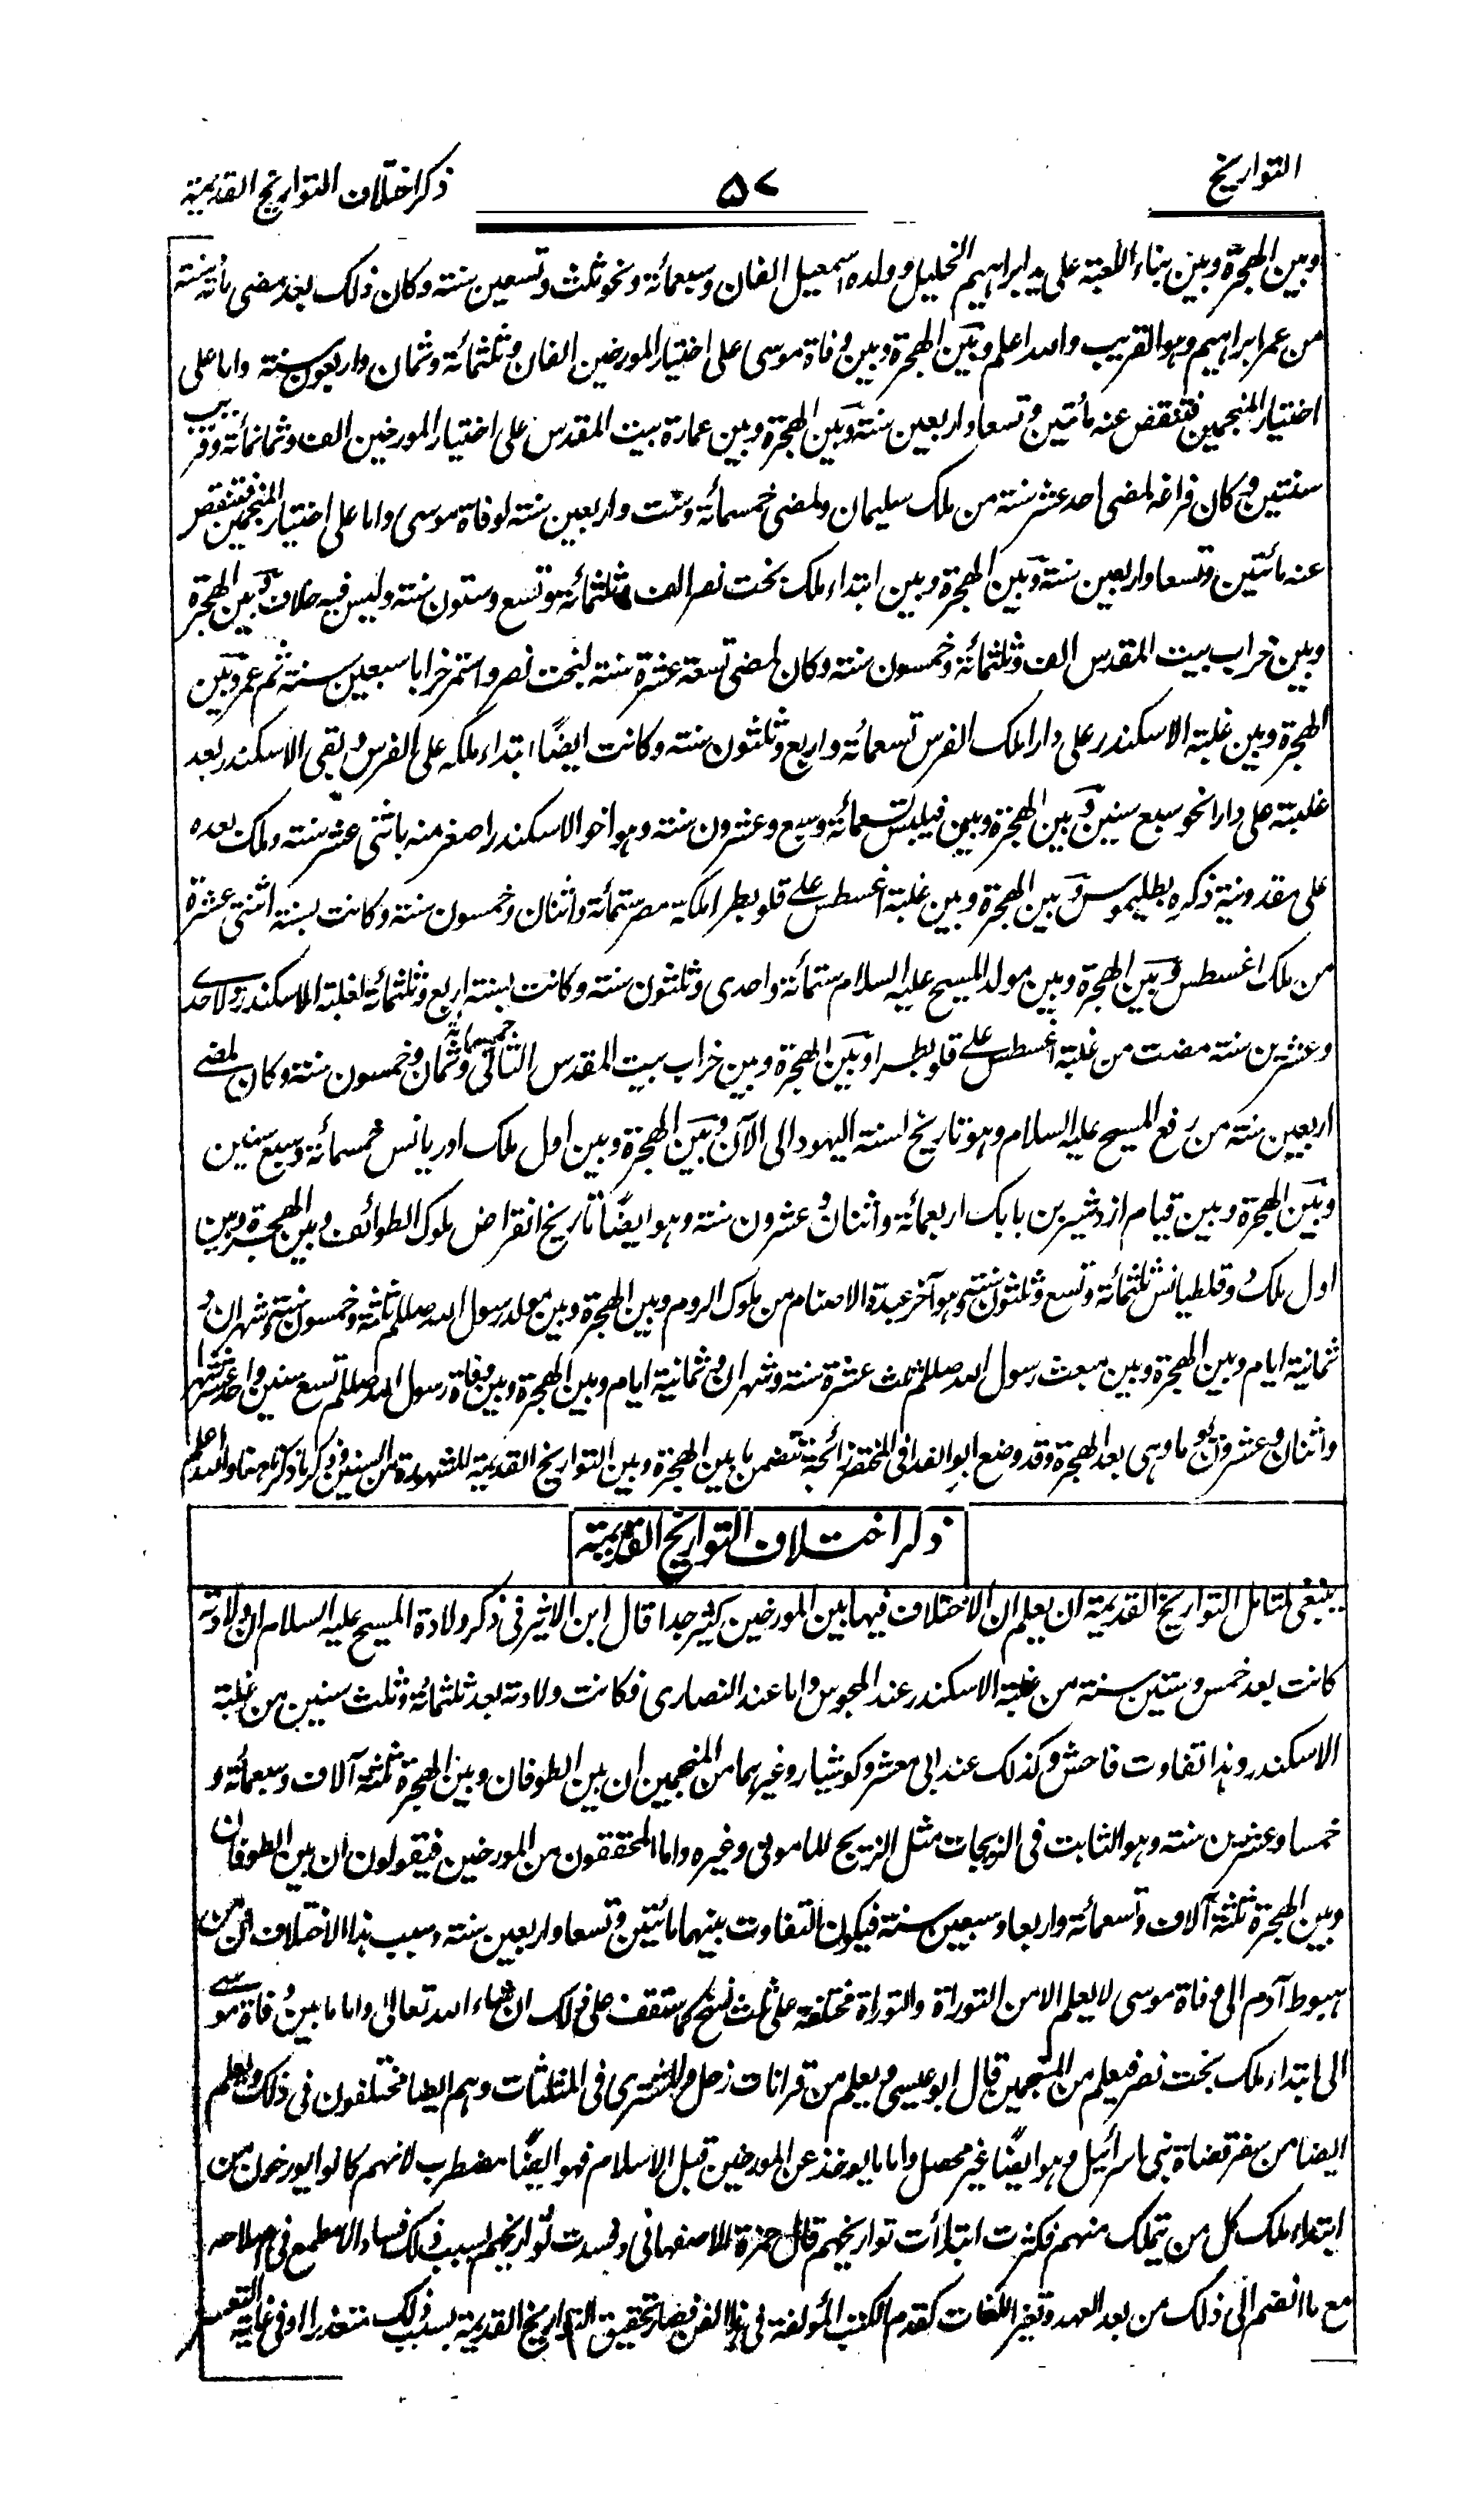 التواريخ
۵۷
ذكر اختلاف التواريخ القديمة
وبين الهجرة وبين بناء الكعبة على يد ابراهيم الخليل وولده اسمعيل الفان وسبعمائة ونحو ثلث وتسعين سنة وكان ذلك بعد مضى مائة سنة
من عمر ابراهيم وهو القريب والله اعلم وبين الهجرة وبين وفاة موسى على اختيار المورخين الفان وثلثمائة وثمان واربعون سنة واما على
اختيار المنجمين فتنقص عنه مأتين وتسعا واربعين سنة وبين الهجرة وبين عمارة بيت المقدس على اختيار المورخين الف وثمانمائة وقريب
سنتين وكان فراغه لمضى احد عشر سنة من ملك سليمان ولمضى خمسمائة وست واربعين سنة لوفاة موسى واما على اختيار المنجمين فتنقص
عنه مائتين وتسعا واربعين سنة وبين الهجرة وبين ابتداء ملك بخت نصر الف وثلثمائة وتسع وستون سنة وليس فيه خلاف وبين الهجرة
وبين خراب بيت المقدس الف وثلثمائة وخمسون سنة وكان لمضى تسعة عشرة سنة لبخت نصر واستمر خرابا سبعين سنة ثم عمر وبين
الهجرة وبين غلبة الاسكندر على دارا ملك الفرس تسعمائة واربع وثلثون سنة وكانت ايضًا ابتداء ملكه على الفرس وبقى الاسكندر بعد
غلبته على دارا نحو سبع سنين وبين الهجرة وبين فيلبس تسعمائة وسبع وعشرون سنة وهو اخو الاسكندر اصغر منه باثنى عشر سنة وملك بعده
على مقدونية ذكره بطليموس وبين الهجرة وبين غلبة اغسطس على قلوبطرا ملكة مصر ستمائة واثنان وخمسون سنة وكانت بسنة اثنتى عشرة
من ملك اغسطس وبين الهجرة وبين مولد المسيح عليه السلام ستمائة واحدى وثلثون سنة وكانت بسنة اربع وثلثمائة لغلبة الاسكندر ولاحدى
وعشرين سنة مضت من غلبة اغسطس على قلوبطرا وبين الهجرة وبين خراب بيت المقدس الثانى خمسمائة وثمان وخمسون سنة وكان لمضى
اربعين سنة من رفع المسيح عليه السلام وهو تاريخ لسنة اليهود الى الآن وبين الهجرة وبين اول ملك اوريانس خمسمائة وسبع سنين
وبين الهجرة وبين قيام ازدشير بن بابك اربعمائة واثنان وعشرون سنة وهو ايضًا تاريخ انقراض ملوك الطوائف وبين الهجرة وبين
اول ملك دقلطيانس ثلثمائة وتسع وثلثون سنة وهو آخر عبدة الاصنام من ملوك الروم وبين الهجرة وبين مولد رسول الله صللم ثلثة وخمسون سنة وشهران و
ثمانية ايام وبين الهجرة وبين مبعث رسول الله صللم ثلث عشرة سنة وشهران وثمانية ايام وبين الهجرة وبين وفاة رسول الله صللم تسع سنين واحد عشر شهرا
واثنان وعشرون يوما وهى بعد الهجرة وقد وضع ابو الفدا فى المختصر زائجة تتضمن ما بين الهجرة وبين التواريخ القديمة المشهورة من السنين وذكر ما ذكرنا هنا والله اعلم
ذكر اختلاف التواريخ القديمة
ينبغى لتامل التواريخ القديمة ان يعلم ان الاختلاف فيها بين المورخين كثير جدا قال ابن الاثير فى ذكر ولادة المسيح عليه السلام ان ولادته
كانت بعد خمس وستين سنة من غلبة الاسكندر عند المجوس واما عند النصارى فكانت ولادته بعد ثلثمائة وثلث سنين من غلبة
الاسكندر وهذا تفاوت فاحش وكذلك عند ابى معشر وكوشيار وغيرهما من المنجمين ان بين الطوفان وبين الهجرة ثلثة آلاف وسبعمائة و
خمسا وعشرين سنة وهو الثابت فى الزيجات مثل الزيج المامونى وغيره واما المحققون من المورخين فيقولون ان بين الطوفان
وبين الهجرة ثلثة آلاف وتسعمائة واربعا وسبعين سنة فيكون التفاوت بينهما مائتين وتسعا واربعين سنة وسبب هذا الاختلاف ان من
هبوط آدم الى وفاة موسى لا يعلم الا من التوراة والتوراة مختلفة على ثلث نسخ كما ستقف على ذلك ان شاء الله تعالى واما ما بين وفاة موسى
الى ابتداء ملك بخت نصر فيعلم من المنجمين قال ابو عيسى ويعلم من قرانات زحل والمشترى فى المثلثات وهم ايضا مختلفون فى ذلك ويعلم
ايضا من سفر قضاة بنى اسرائيل وهو ايضًا غير محصل واما ما يوخذ عن المورخين قبل الاسلام فهو ايضًا مضطرب لانهم كانوا يورخون من
ابتداء ملك كل من يتملك منهم فكثرت ابتداأت تواريخهم قال حمزة الاصفهانى وفسدت تواريخهم بسبب ذلك فسادا لا مطمع فى اصلاحه
مع ما انضم الى ذلك من بعد العهد وتغير اللغات كقدم الكتب المؤلفة فى هذا الفن فصار تحقيق التواريخ القديمة بسبب ذلك متعذرا او فى غاية التعسر